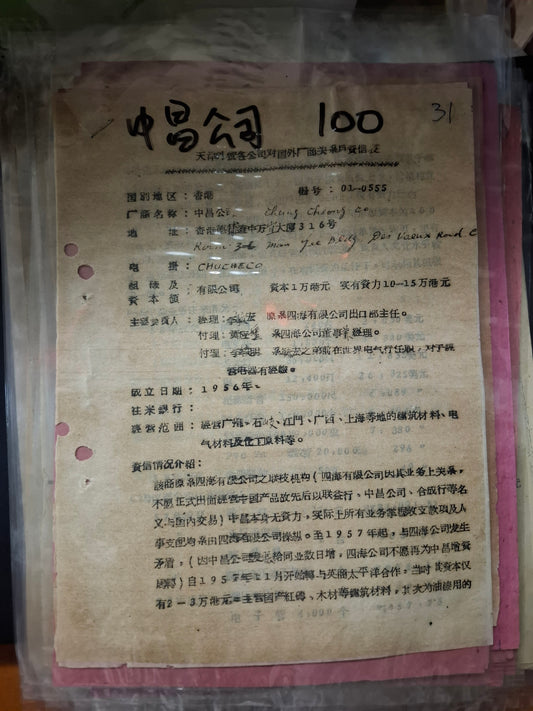 中昌公司 100 31
天津 公司对国外厂商关系户资信
国别地区：香港 编号：01-0555
厂商名称：中昌公司 Chung Cheong Co
地 址 香港德辅道中万宜大厦316号
Room 316 Man Yee Bldg. Des Vaeux Road C
电 掛：CHUCHECO
组织及 有限公司 资本1万港元 实有资力10—15万港元
资本额
主要负责人：经理： 原系四海有限公司出口部主任。
付理： 系四海公司董事兼经理。
付理：李 系 之弟前在世界电气行任职，对于经
营电器有经验。
成立日期：1956年。
往来银行：
经营范围：经营广州、石岐、江門、广西、上海等地的建筑材料、电
气材料及化工原料等。
资信情况介绍：
該商原系四海有限公司之联枝机构（四海有限公司因其业务上关系，
不愿正式出面經营中国产品故先后以联益行、中昌公司、合成行等名
义与国内交易）中昌本身无资力，实际上所有业务掌握收支款项及人
事支配均系由四海有限公司操纵。至1957年起，与四海公司发生
矛盾，（因中昌公司 給同业数日增，四海公司不愿再为中昌增資
周轉）自1957年11月开始轉与英商太平洋合作，当时其資本仅
有2—3万港元 主营国产紅磚、木材等建筑材料，其次为油漆用的
电子管 4,000个